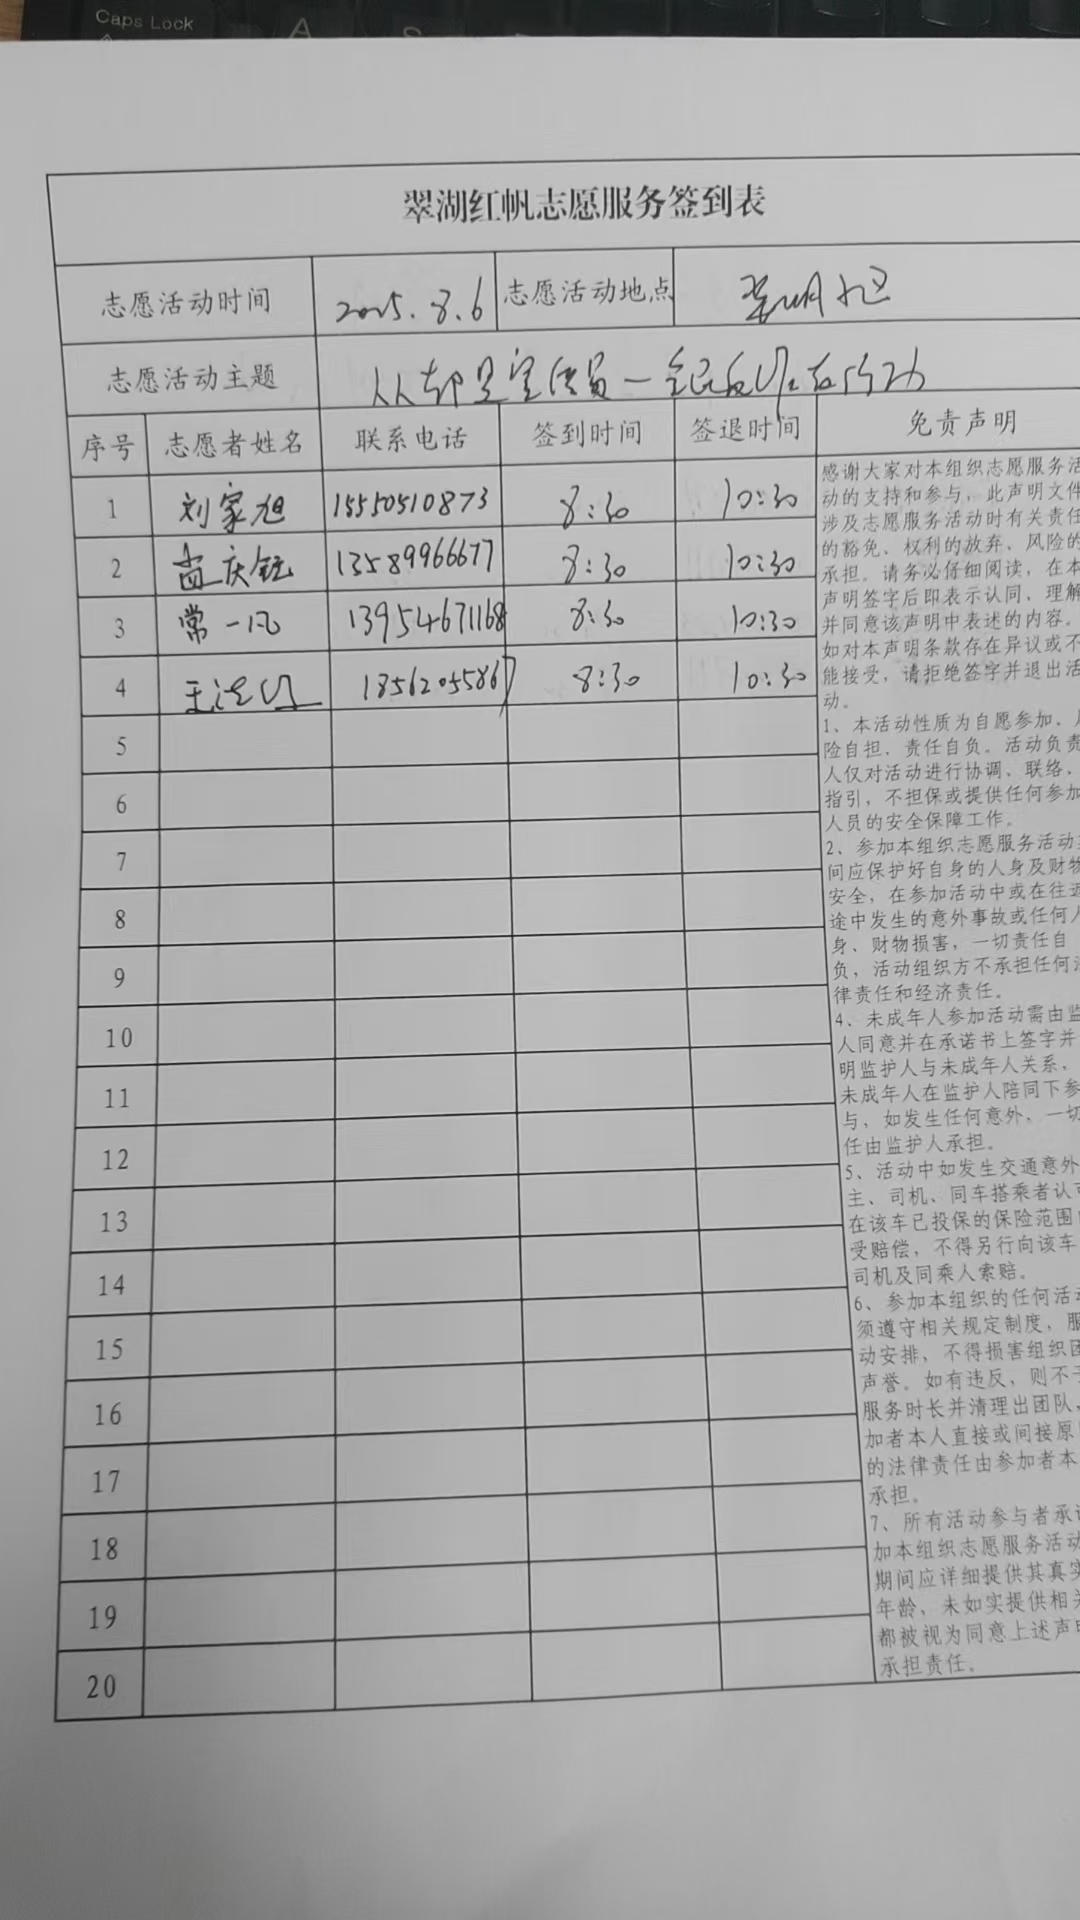 Caps Lock
A
S
翠湖红帆志愿服务签到表
志愿活动时间 2025.8.6 志愿活动地点
志愿活动主题 人人都是宣传员一全民反诈在行动
序号 志愿者姓名 联系电话 签到时间 签退时间 免责声明
1 刘家旭 15550510873 8:30 10:30
2 苗庆钰 13589966677 8:30 10:30
3 常一凡 13954671168 8:30 10:30
4 18562055867 8:30 10:30
5
6
7
8
9
10
11
12
13
14
15
16
17
18
19
20
感谢大家对本组织志愿服务活
动的支持和参与，此声明文件
涉及志愿服务活动时有关责任
的豁免、权利的放弃、风险的
承担。请务必仔细阅读，在本
声明签字后即表示认同，理解
并同意该声明中表述的内容。
如对本声明条款存在异议或不
能接受，请拒绝签字并退出活
动。
1、本活动性质为自愿参加、
险自担，责任自负。活动负责
人仅对活动进行协调、联络、
指引，不担保或提供任何参加
人员的安全保障工作。
2、参加本组织志愿服务活动
间应保护好自身的人身及财物
安全，在参加活动中或在往返
途中发生的意外事故或任何人
身、财物损害，一切责任自
负，活动组织方不承担任何法
律责任和经济责任。
4、未成年人参加活动需由监
人同意并在承诺书上签字并
明监护人与未成年人关系，
未成年人在监护人陪同下参
与，如发生任何意外，一切
任由监护人承担。
5、活动中如发生交通意外
主、司机、同车搭乘者认可
在该车已投保的保险范围
受赔偿，不得另行向该车
司机及同乘人索赔。
6、参加本组织的任何活动
须遵守相关规定制度，服
动安排，不得损害组织团
声誉。如有违反，则不予
服务时长并清理出团队，
加者本人直接或间接原
的法律责任由参加者本
承担。
7、所有活动参与者承诺
加本组织志愿服务活动
期间应详细提供其真实
年龄，未如实提供相关
都被视为同意上述声明
承担责任。